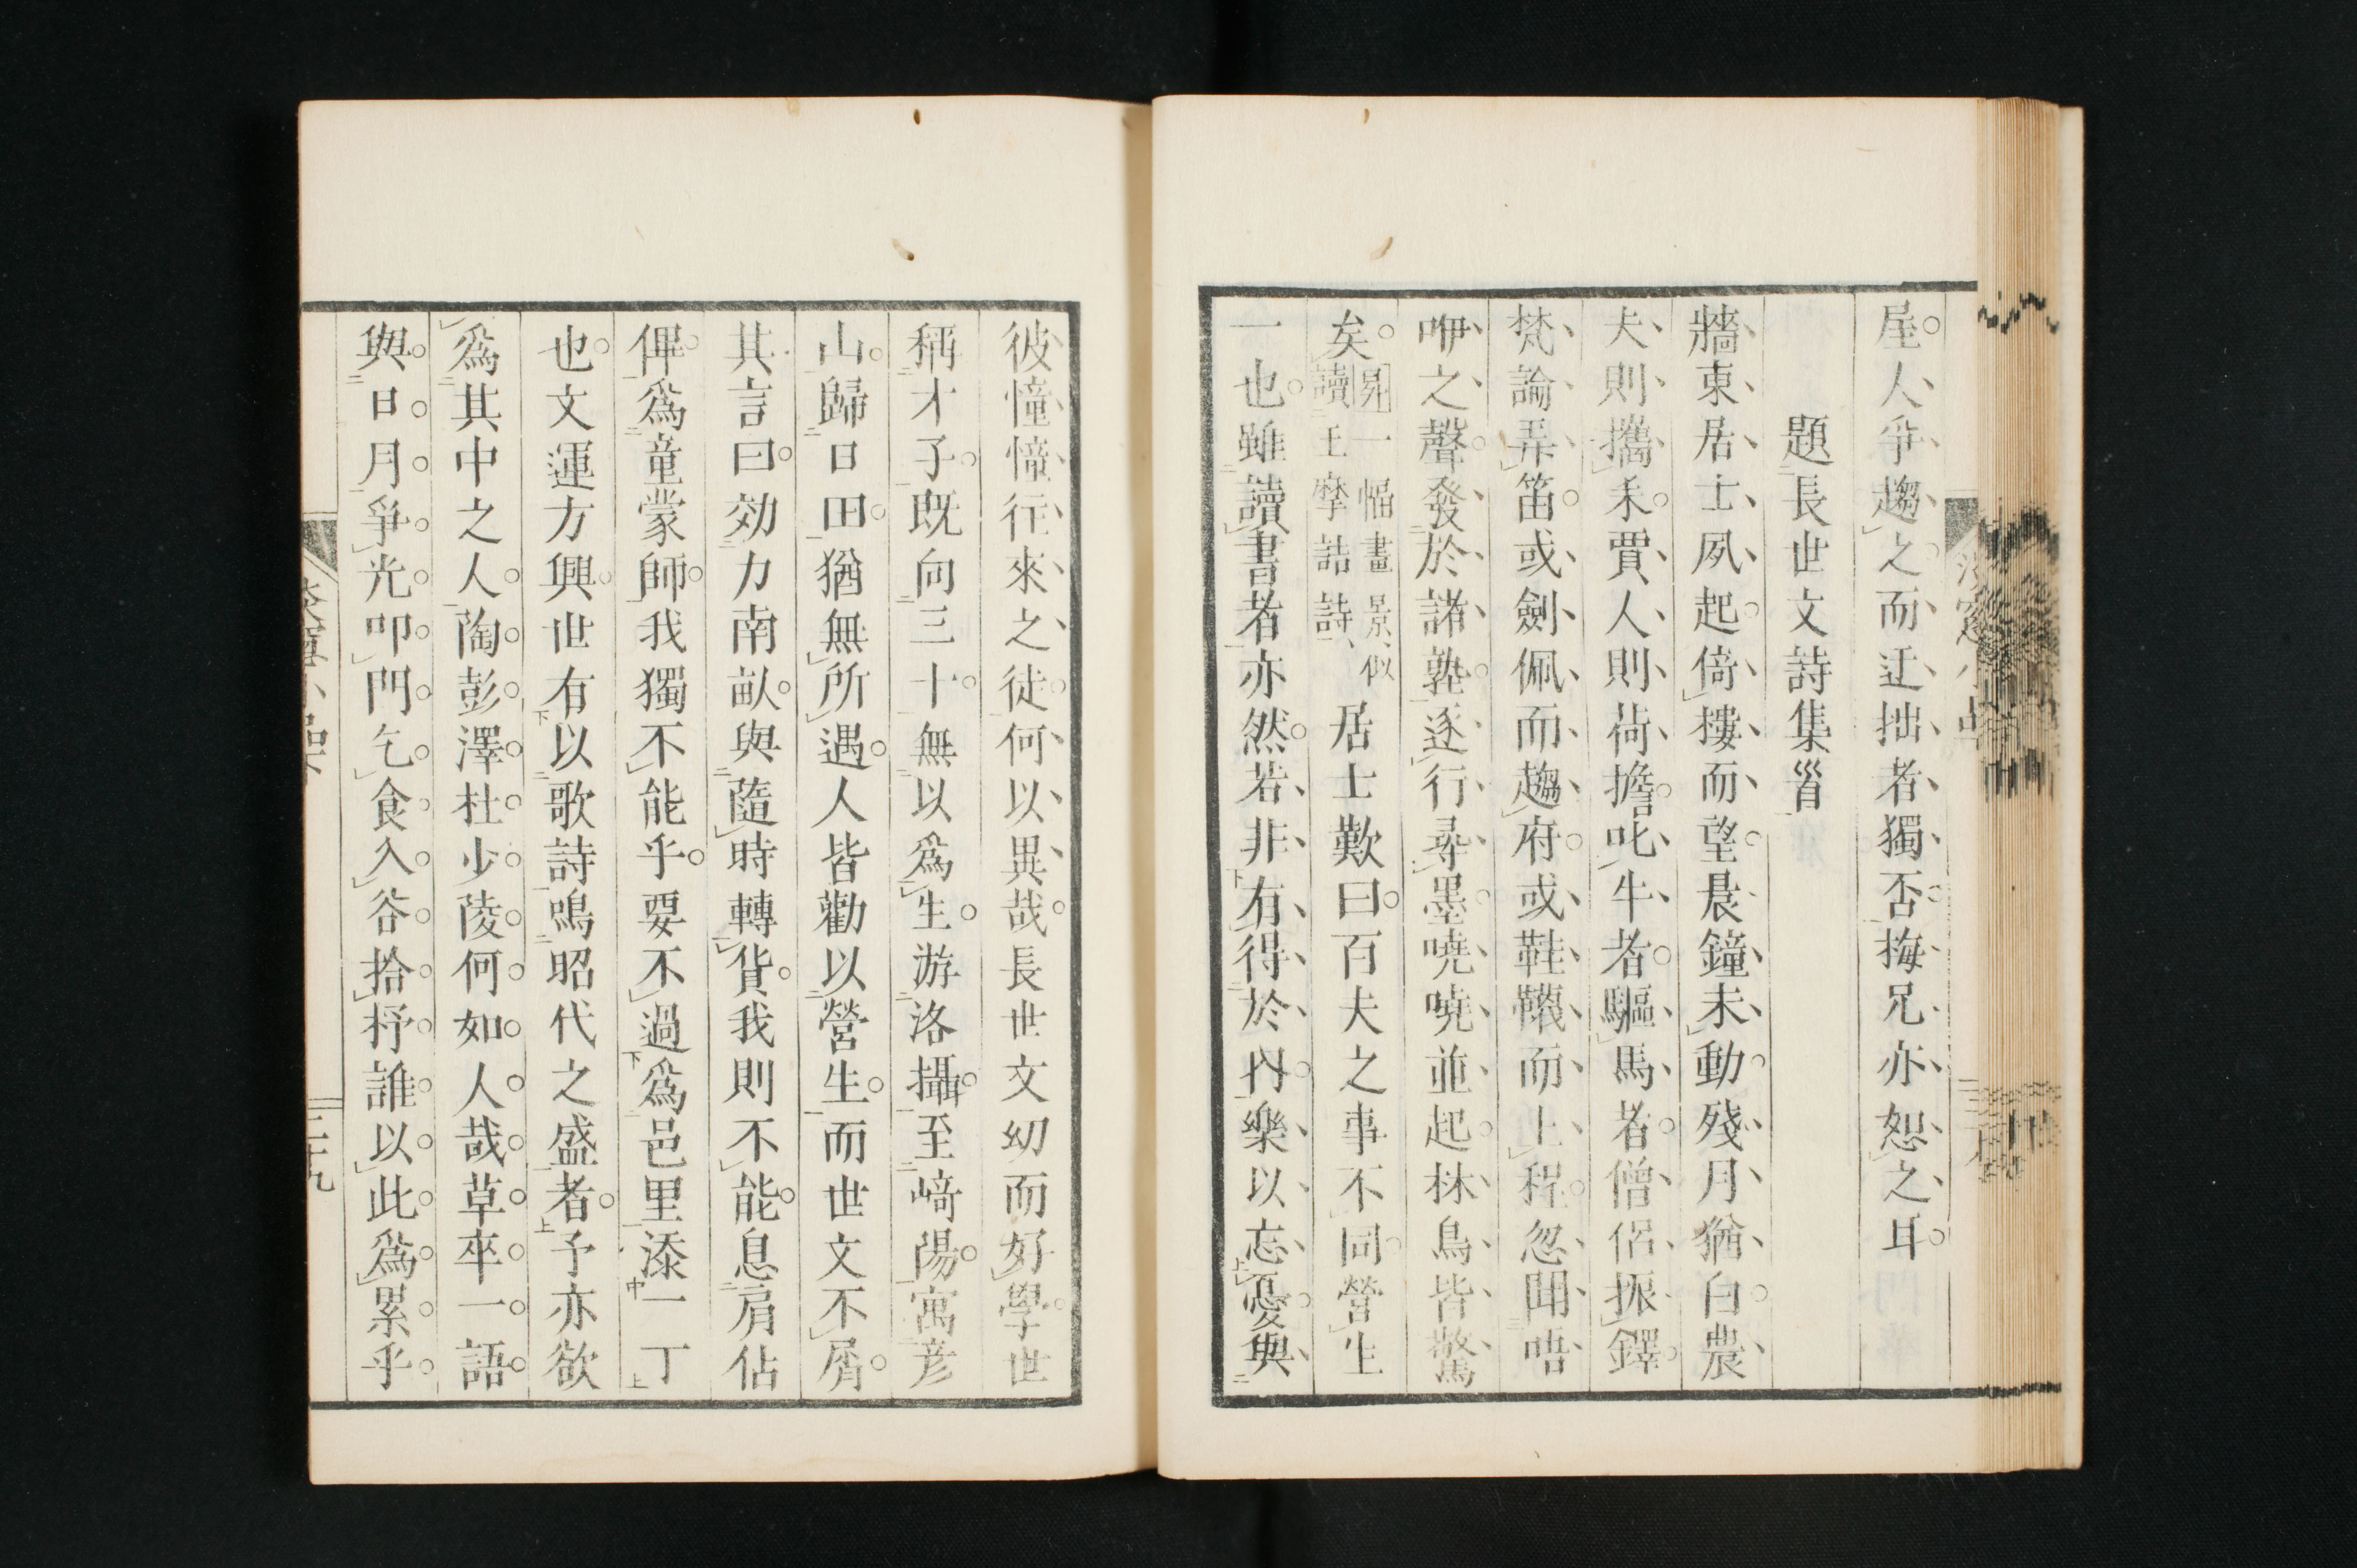 屋人爭趨之而迂拙者獨否梅兄亦恕之耳
題長世文詩集首
牆東居士夙起倚樓而望晨鐘未動殘月猶白農
夫則攜耒賈人則荷擔叱牛者驅馬者僧侶振鐸
梵論弄笛或劍佩而趨府或鞋韤而上程忽聞唔
咿之聲發於諸塾逐行尋墨嘵嘵並起林鳥皆驚
矣
晁一幅畫景似
讀王摩詰詩
居士歎曰百夫之事不同營生
一也雖讀書者亦然若非有得於內樂以忘憂與
彼憧憧往來之徒何以異哉長世文幼而好學世
稱才子既向三十無以為生游洛攝至﨑陽寓彦
山歸日田猶無所遇人皆勸以營生而世文不屑
其言曰効力南畝與隨時轉貨我則不能息肩佔
俾爲童蒙師我獨不能乎要不過爲邑里添一丁
也文運方興世有以歌詩鳴昭代之盛者予亦欲
爲其中之人陶彭澤杜少陵何如人哉草卒一語
與日月爭光叩門乞食入谷拾杼誰以此爲累乎
淡窓小品
三十九